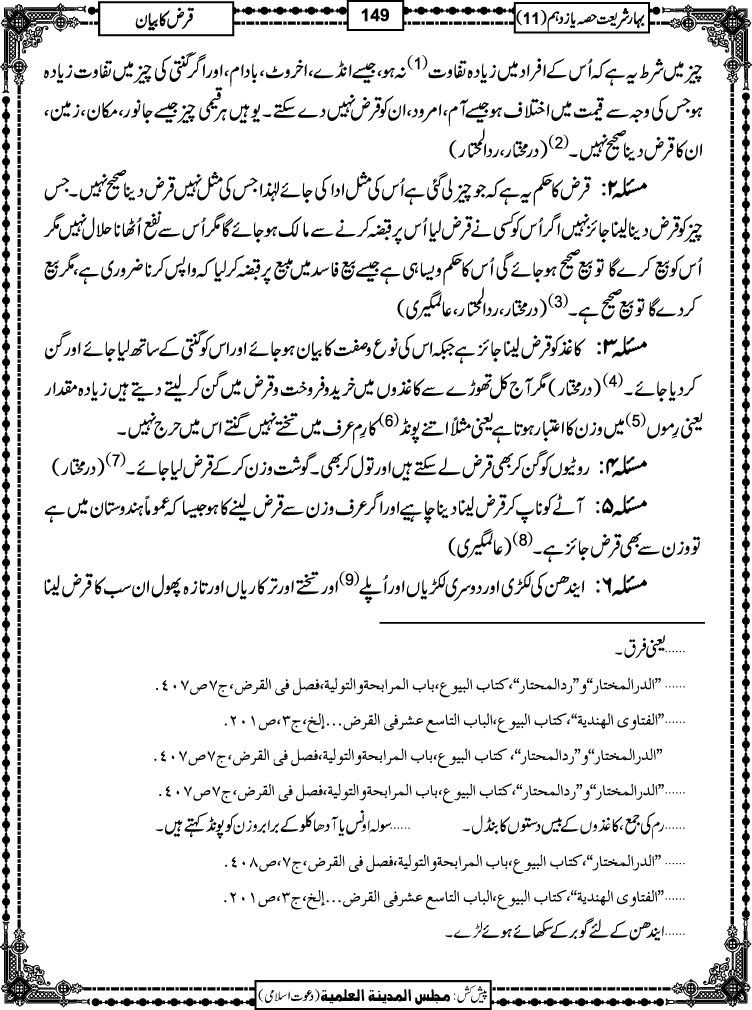 بہار شریعت حصہ یازدہم (11)
149
قرض کا بیان
چیز میں شرط یہ ہے کہ اُس کے افراد میں زیادہ تفاوت(1) نہ ہو، جیسے انڈے، اخروٹ، بادام، اور اگر گنتی کی چیز میں تفاوت زیادہ
ہو جس کی وجہ سے قیمت میں اختلاف ہو جیسے آم، امرود، ان کو قرض نہیں دے سکتے۔ یوہیں ہر قیمی چیز جیسے جانور، مکان، زمین،
ان کا قرض دینا صحیح نہیں۔(2) (درمختار، ردالمحتار)
مسئلہ ۲: قرض کا حکم یہ ہے کہ جو چیز لی گئی ہے اُس کی مثل ادا کی جائے لہٰذا جس کی مثل نہیں قرض دینا صحیح نہیں۔ جس
چیز کو قرض دینا لینا جائز نہیں اگر اُس کو کسی نے قرض لیا اُس پر قبضہ کرنے سے مالک ہوجائے گا مگر اُس سے نفع اُٹھانا حلال نہیں مگر
اُس کو بیع کرے گا تو بیع صحیح ہوجائے گی اُس کا حکم ویسا ہی ہے جیسے بیع فاسد میں مبیع پر قبضہ کرلیا کہ واپس کرنا ضروری ہے، مگر بیع
کردے گا تو بیع صحیح ہے۔(3) (درمختار، ردالمحتار، عالمگیری)
مسئلہ ۳: کاغذ کو قرض لینا جائز ہے جبکہ اس کی نوع وصفت کا بیان ہوجائے اور اس کو گنتی کے ساتھ لیا جائے اور گن
کر دیا جائے۔(4) (درمختار) مگر آج کل تھوڑے سے کاغذوں میں خرید و فروخت و قرض میں گن کر لیتے دیتے ہیں زیادہ مقدار
یعنی رِموں(5) میں وزن کا اعتبار ہوتا ہے یعنی مثلاً اتنے پونڈ(6) کا رِم عرف میں تختے نہیں گنتے اس میں حرج نہیں۔
مسئلہ ۴: روٹیوں کو گن کر بھی قرض لے سکتے ہیں اور تول کر بھی۔ گوشت وزن کرکے قرض لیا جائے۔(7) (درمختار)
مسئلہ ۵: آٹے کو ناپ کر قرض لینا دینا چاہیے اور اگر عرف وزن سے قرض لینے کا ہو جیسا کہ عموماً ہندوستان میں ہے
تو وزن سے بھی قرض جائز ہے۔(8) (عالمگیری)
مسئلہ ۶: ایندھن کی لکڑی اور دوسری لکڑیاں اور اُپلے(9) اور تختے اور ترکاریاں اور تازہ پھول ان سب کا قرض لینا
......یعنی فرق۔
...... ”الدرالمختار“و”ردالمحتار“،کتاب البیوع،باب المرابحةوالتولیة،فصل فی القرض،ج۷ص۴۰۷.
......”الفتاوی الهندیة“،کتاب البیوع،الباب التاسع عشرفی القرض...إلخ،ج۳،ص۲۰۱.
”الدرالمختار“و”ردالمحتار“، کتاب البیوع،باب المرابحةوالتولیة،فصل فی القرض،ج۷ص۴۰۷.
......”الدرالمختار“و”ردالمحتار“، کتاب البیوع،باب المرابحةوالتولیة،فصل فی القرض،ج۷ص۴۰۷.
......رم کی جمع، کاغذوں کے بیس دستوں کا بنڈل۔ ......سولہ اونس یا آدھا کلو کے برابر وزن کو پونڈ کہتے ہیں۔
...... ”الدرالمختار“، کتاب البیوع،باب المرابحةوالتولیة،فصل فی القرض،ج۷،ص۴۰۸.
......”الفتاوی الهندیة“،کتاب البیوع،الباب التاسع عشرفی القرض...إلخ،ج۳،ص۲۰۱.
......ایندھن کے لئے گوبر کے سکھائے ہوئے لڑے۔
پیش کش: مجلس المدینة العلمیة (دعوت اسلامی)